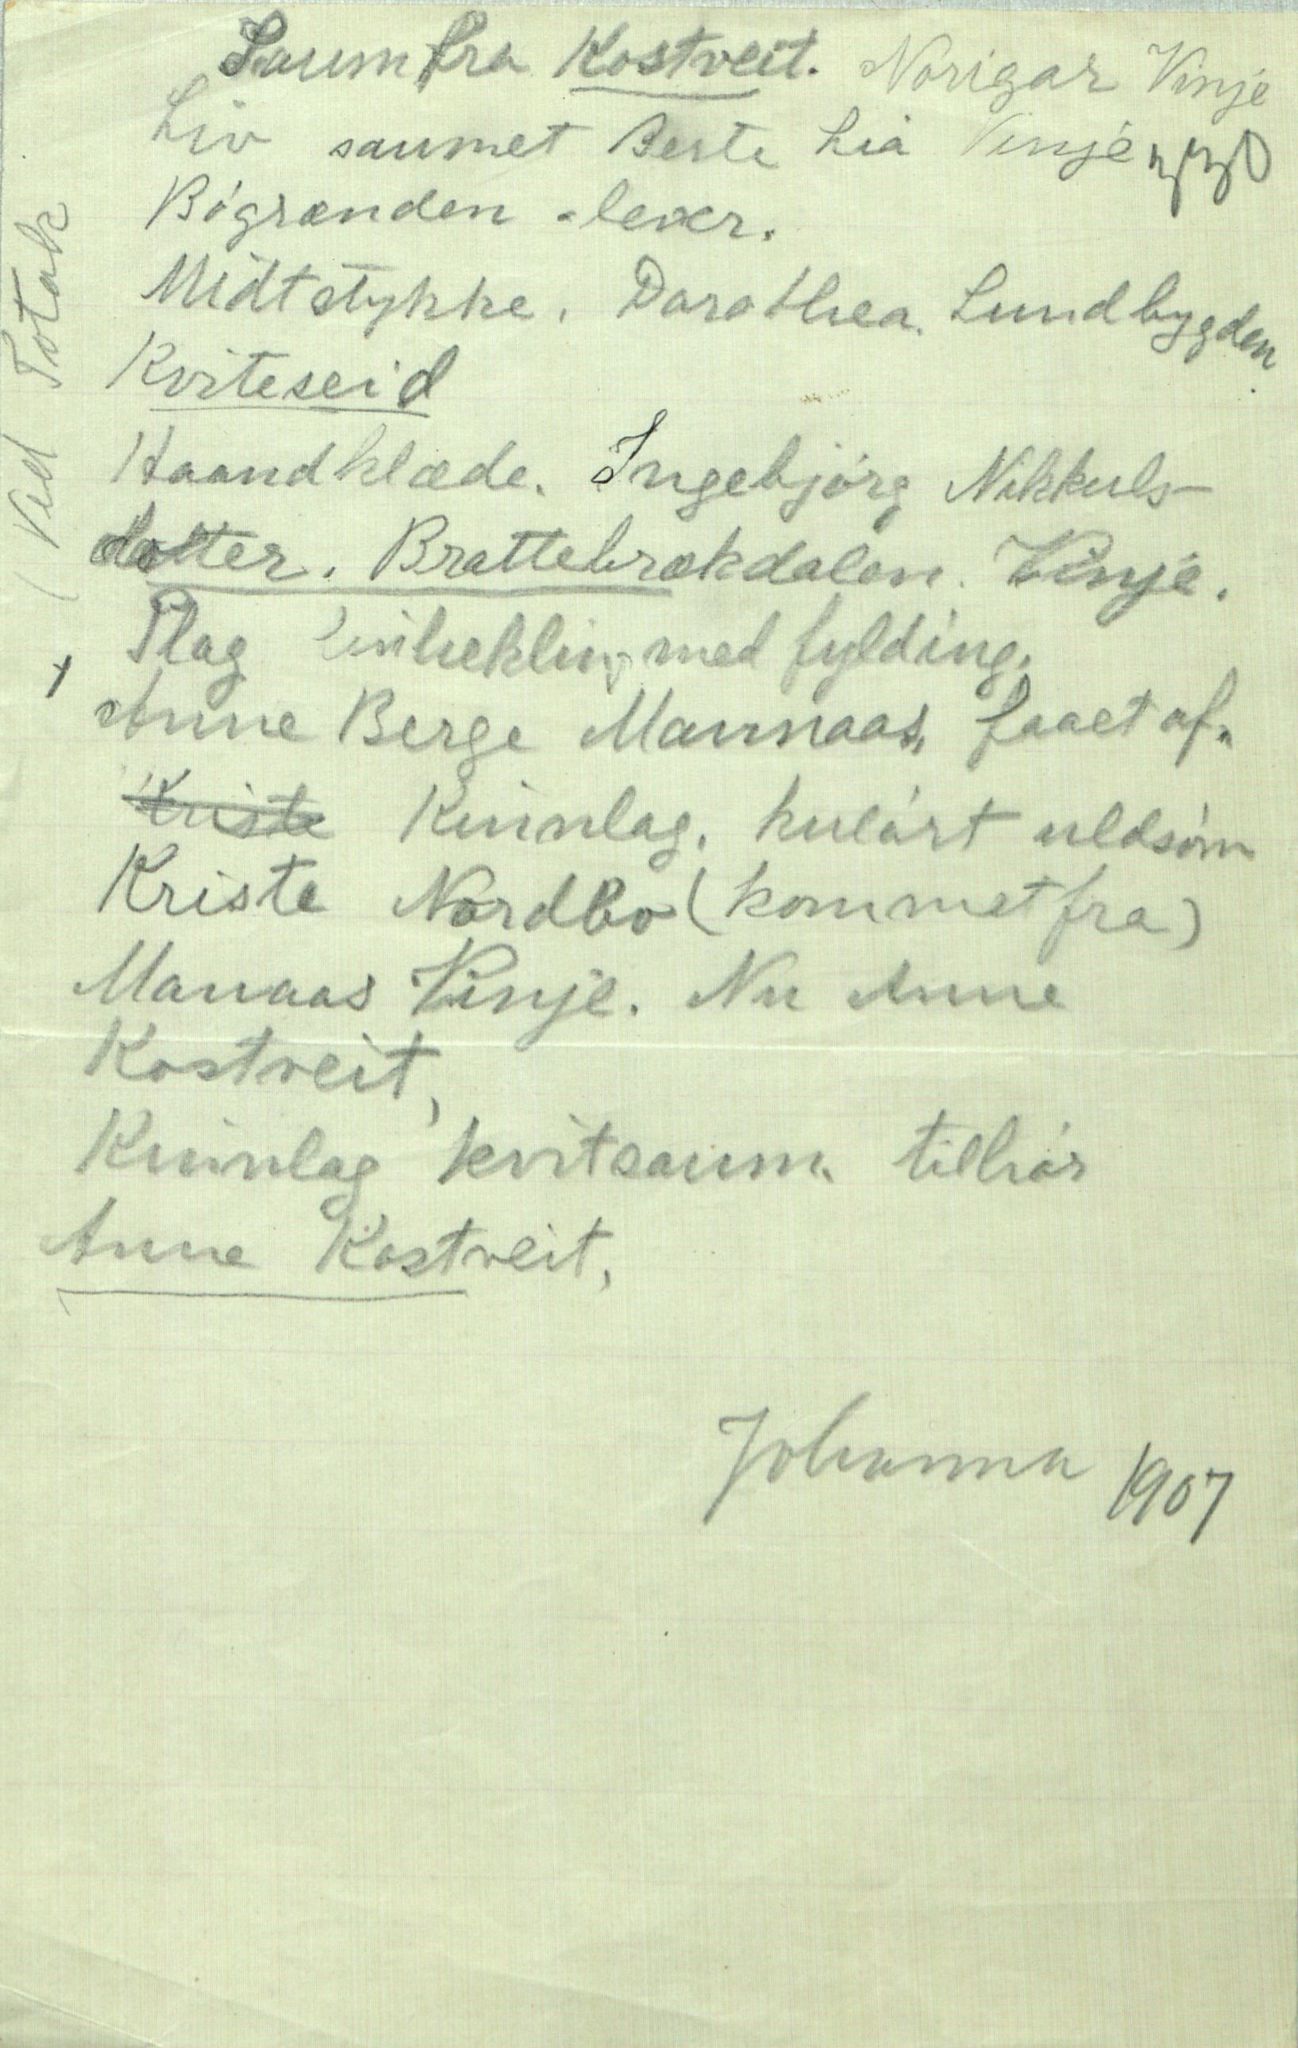 Saum fra Kostveit. Norigar Vinje
Liv saumet Berte Lia Vinje
Bøgrænden - lever.
Midtstykke. Dorothea. Lundbygden
Kviteseid
Haandklæde. Ingebjørg Nikkuls-
dotter. Brattebrækdalen. Vinje.
(Ved Totak
Plag med fylding.
Anne Berge Mannaas, faaet af.
Kriste Kvinnlag. kulørt uldsøm
Kriste Nordbo (kommet fra)
Manaas Vinje. Nu Anne
Kostveit,
Kvinnlag kvitsaum. tilhør
Anne Kostveit.
Johanna 1907